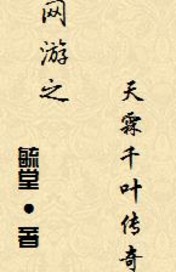 网游之
天霖千叶传奇
毓堂•著